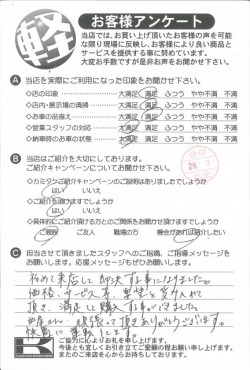 軽
お客様アンケート
当店では、お買い上げ頂いたお客様の声を可能
な限り現場に反映し、お客様により良い商品と
サービスを提供する事に努めています。
大変お手数ですが是非お声をお聞かせ下さい。
A 当店を実際にご利用になった印象をお聞かせ下さい。
◇店の印象 大満足 満足 ふつう やや不満 不満
◇店内・展示場の清掃 大満足 満足 ふつう やや不満 不満
◇お車の品揃え 大満足 満足 ふつう やや不満 不満
◇営業スタッフの対応 大満足 満足 ふつう やや不満 不満
◇納車時のお車の状態 大満足 満足 ふつう やや不満 不満
B 当店はご紹介を大切にしております。
ご紹介キャンペーンについてお聞かせ下さい。
◇カミタケご紹介キャンペーンのご説明はありましたでしょうか
はい いいえ
◇ご紹介を頂けますでしょうか
はい いいえ
◇具体的にご紹介頂ける方とのご関係をお聞かせ下さい
ご親戚 ご友人 職場の方 機会があれば紹介したい
C 担当させて頂きましたスタッフへのご指摘、ご指導メッセージを
お願いします。応援メッセージもぜひお願いします。
初めて来店して即決する事になりました。
価格、サービス等、要望を受け入れて
頂き、満足して購入する事ができました。
頑張って頂きありがとうございます。
ご協力に心よりお礼を申し上げます。
今後とも宜しくお引き立てご愛顧の程お願い申し上げます。
またのご来店を心からお待ちしております。